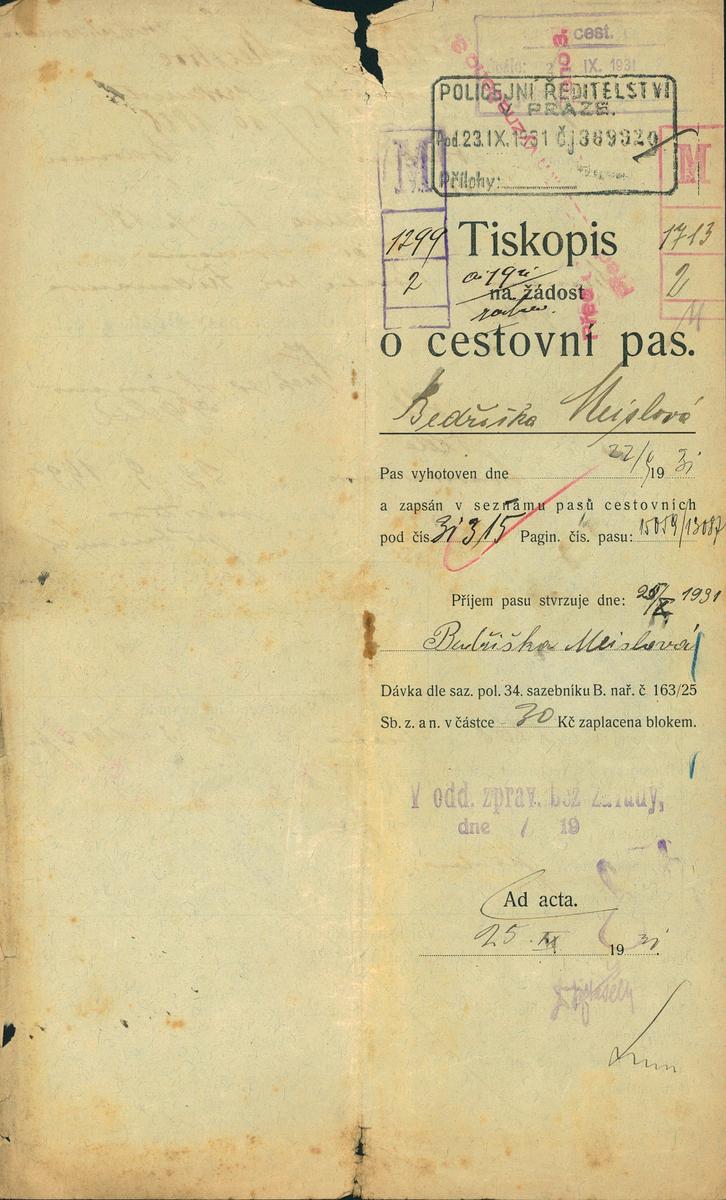 cest.
IX. 1931
POLICEJNÍ ŘEDITELSTVÍ
PRAZE.
Pod. 23.IX.1931 čj 369920
Přílohy:
M
M
1299
Tiskopis
1713
2
na žádost
2
o cestovní pas.
Bedřiška Meislová
Pas vyhotoven dne 22/ 1931
a zapsán v seznamu pasů cestovních
pod čís. 31315 Pagin. čís. pasu: 15059/13087
Příjem pasu stvrzuje dne: 1931
Bedřiška Meislová
Dávka dle saz. pol. 34. sazebníku B. nař. č 163/25
Sb. z. a n. v částce 30 Kč zaplacena blokem.
V odd. zprav. bez závady,
dne / 19
Ad acta.
25. IX. 1931.